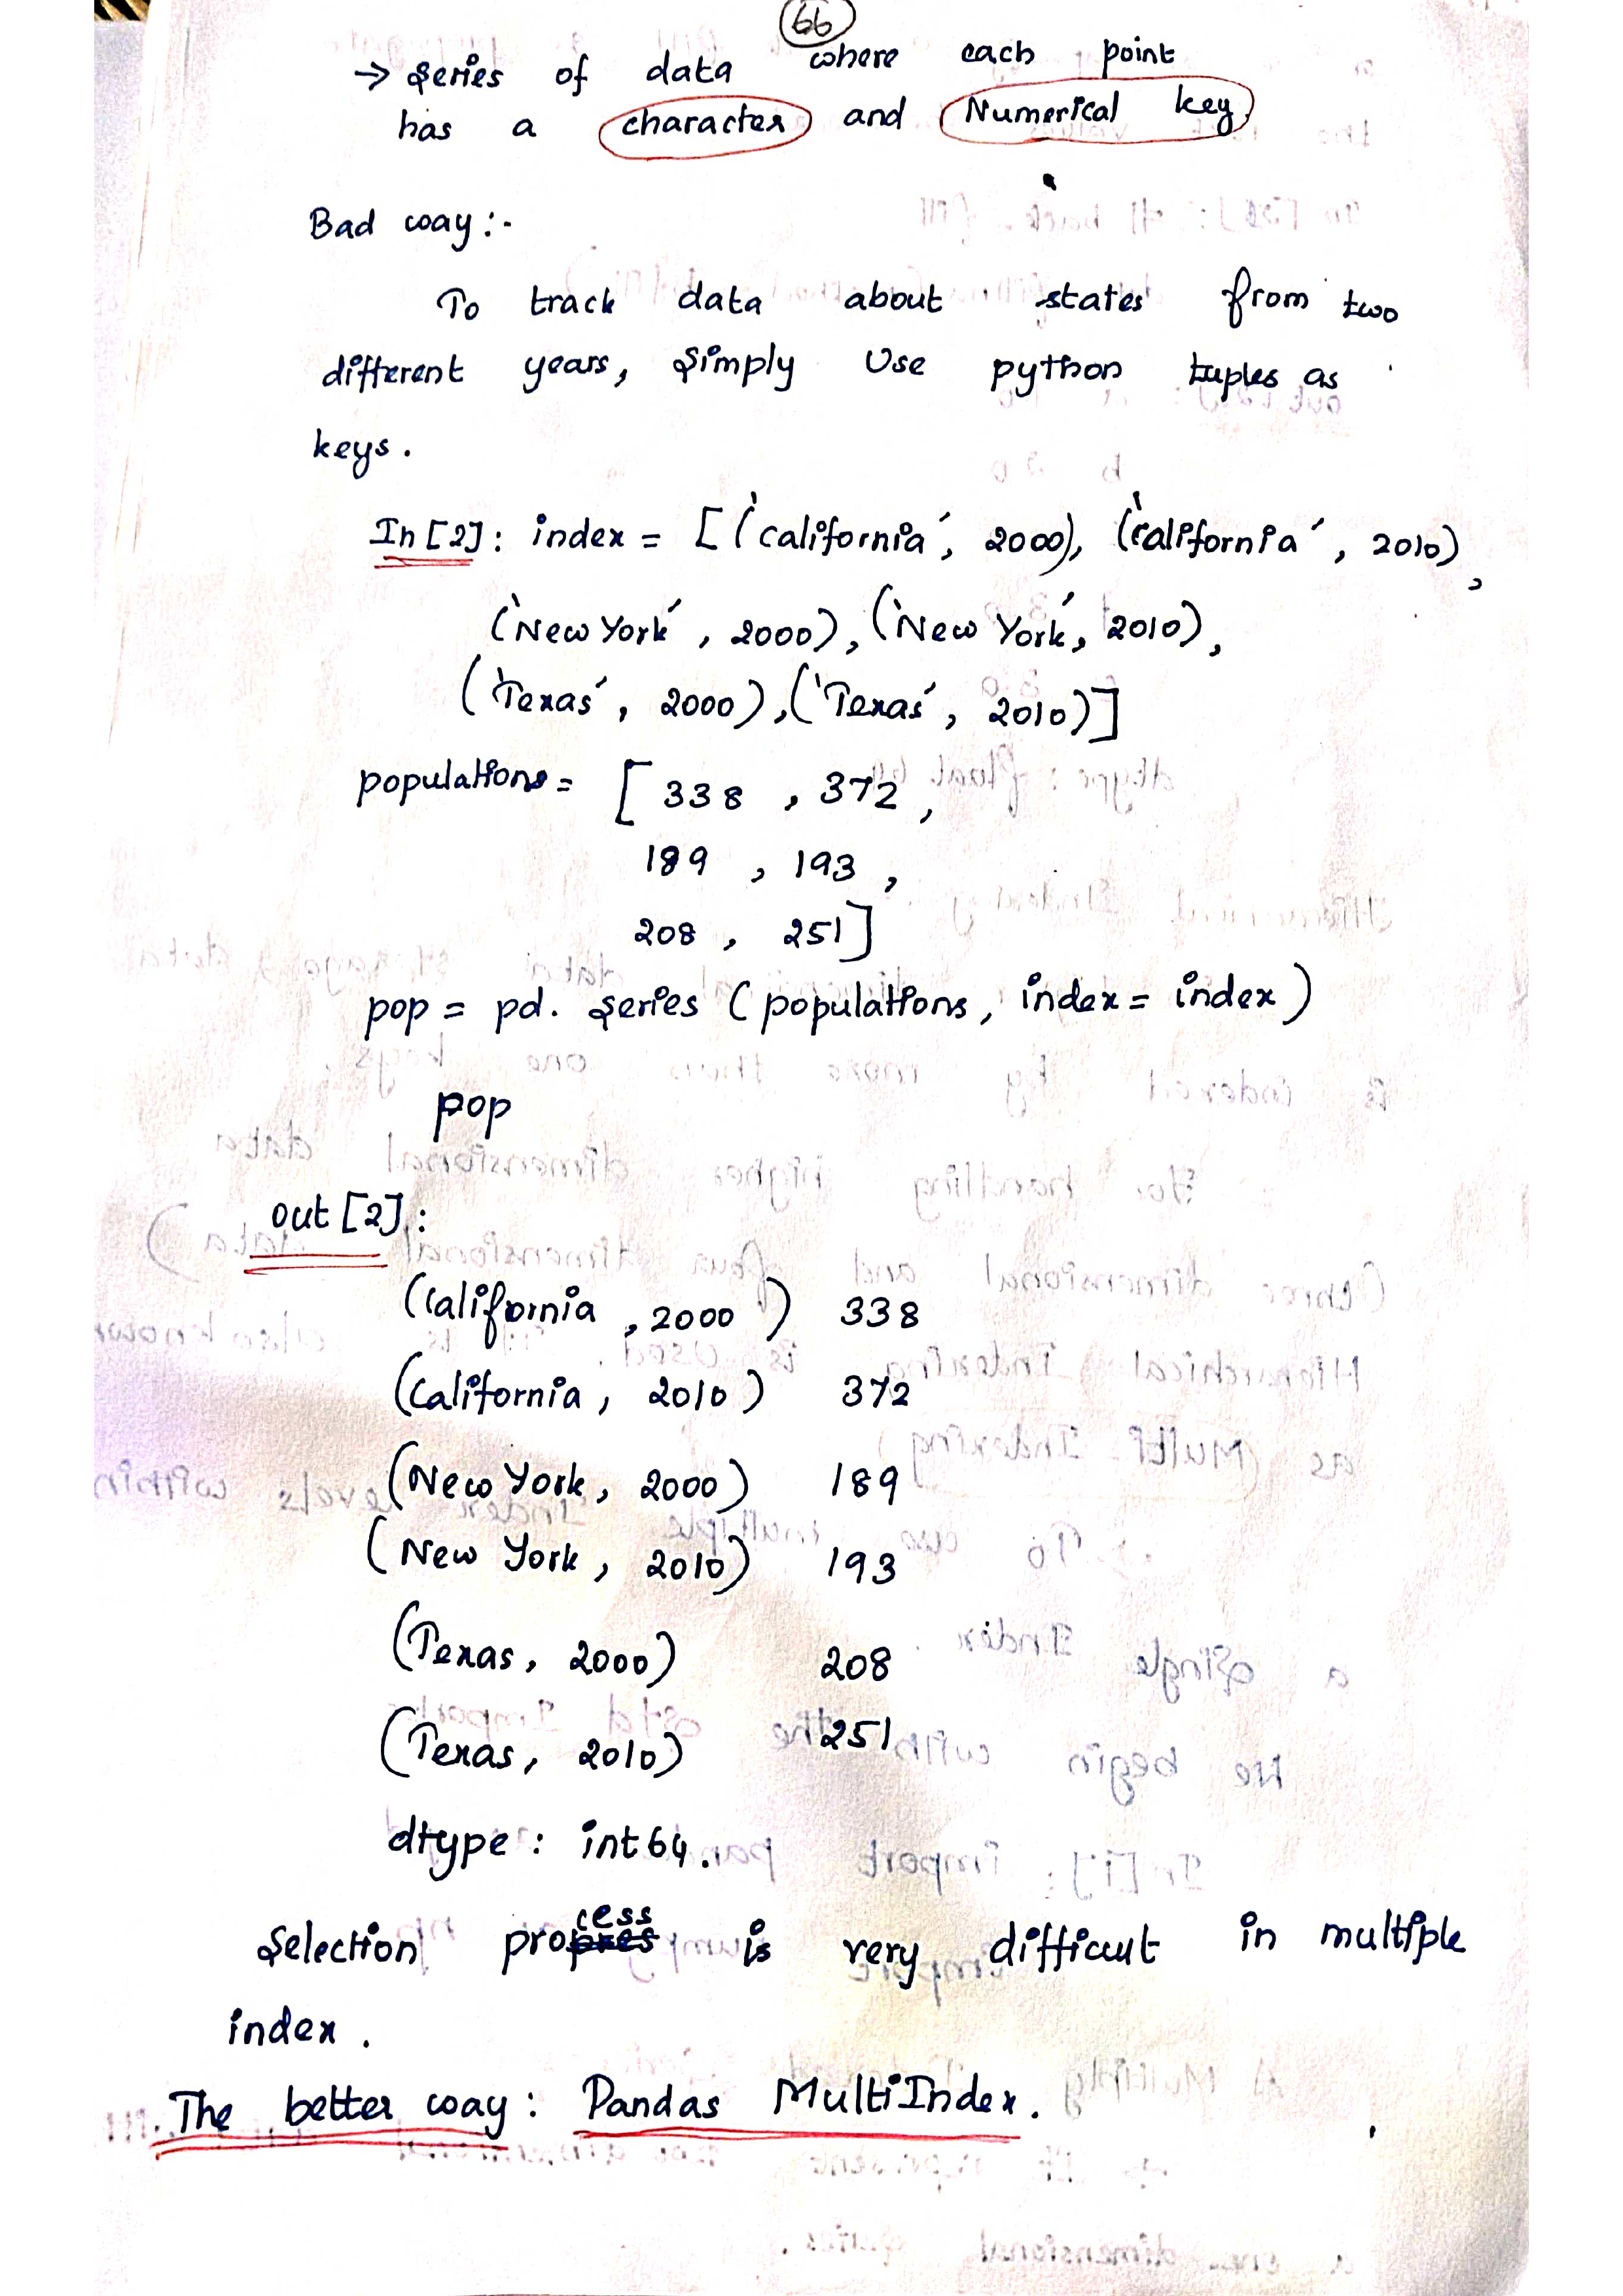 66
→ Series of data where each point
has a character and Numerical key
Bad way :-
To track data about states from two
different years, Simply Use python tuples as
keys.
In [2]: index = [('california', 2000), ('california', 2010),
('New York', 2000), ('New York', 2010),
('Texas', 2000), ('Texas', 2010)]
populations = [338, 372,
189, 193,
208, 251]
pop = pd. Series (populations, index = index)
pop
out [2]:
(California, 2000) 338
(California, 2010) 372
(New York, 2000) 189
(New York, 2010) 193
(Texas, 2000) 208
(Texas, 2010) 251
dtype : int64.
Selection process is very difficult in multiple
index.
The better way : Pandas MultiIndex.